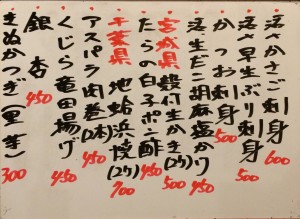 活かさご刺身 600
活早生ぶり刺身 500
かつお刺身 500
活生だこ胡麻塩かけ 450
宮城県 殻付生かき(2ケ) 500
たらの白子ポン酢 450
千葉県 地蛤浜焼(2ケ) 700
アスパラ肉巻(2本) 450
くじら竜田揚げ 450
銀杏 450
きぬかつぎ(里芋) 300